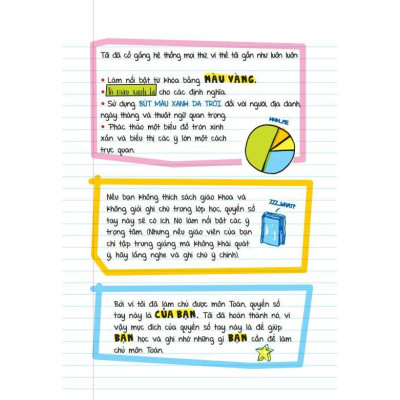 Tôi đã cố gắng hệ thống mọi thứ, vì thế tôi gần như luôn luôn
• Làm nổi bật từ khóa bằng MÀU VÀNG.
• Tô màu xanh lá cho các định nghĩa.
• Sử dụng BÚT MÀU XANH DA TRỜI đối với người, địa danh,
ngày tháng và thuật ngữ quan trọng.
• Phác thảo một biểu đồ tròn xinh
xắn và biểu thị các ý lớn một cách
trực quan.
HMM...PIE
Nếu bạn không thích sách giáo khoa và
không giỏi ghi chú trong lớp học, quyển sổ
tay này sẽ có ích. Nó làm nổi bật các ý
trọng tâm. (Nhưng nếu giáo viên của bạn
chỉ tập trung giảng mà không khái quát
ý, hãy lắng nghe và ghi chú ý chính).
ZZZ...WHAT?
Bởi vì tôi đã làm chủ được môn Toán, quyển sổ
tay này là CỦA BẠN. Tôi đã hoàn thành nó, vì
vậy mục đích của quyển sổ tay này là để giúp
BẠN học và ghi nhớ những gì BẠN cần để làm
chủ môn Toán.